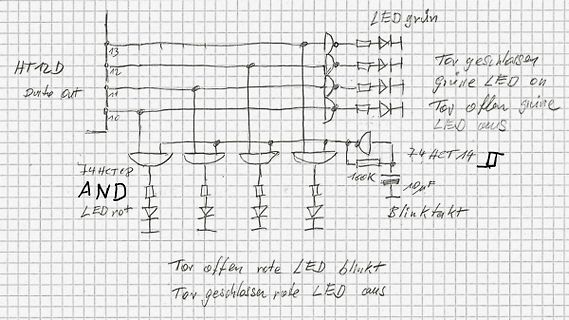 LED grün
13
HT12D
12
11
10
out
Tor geschlossen
grüne LED on
Tor offen grüne
LED aus
74HCT14
100K
10µF
Blinktakt
74HCT08
AND
LED rot
Tor offen rote LED blinkt
Tor geschlossen rote LED aus